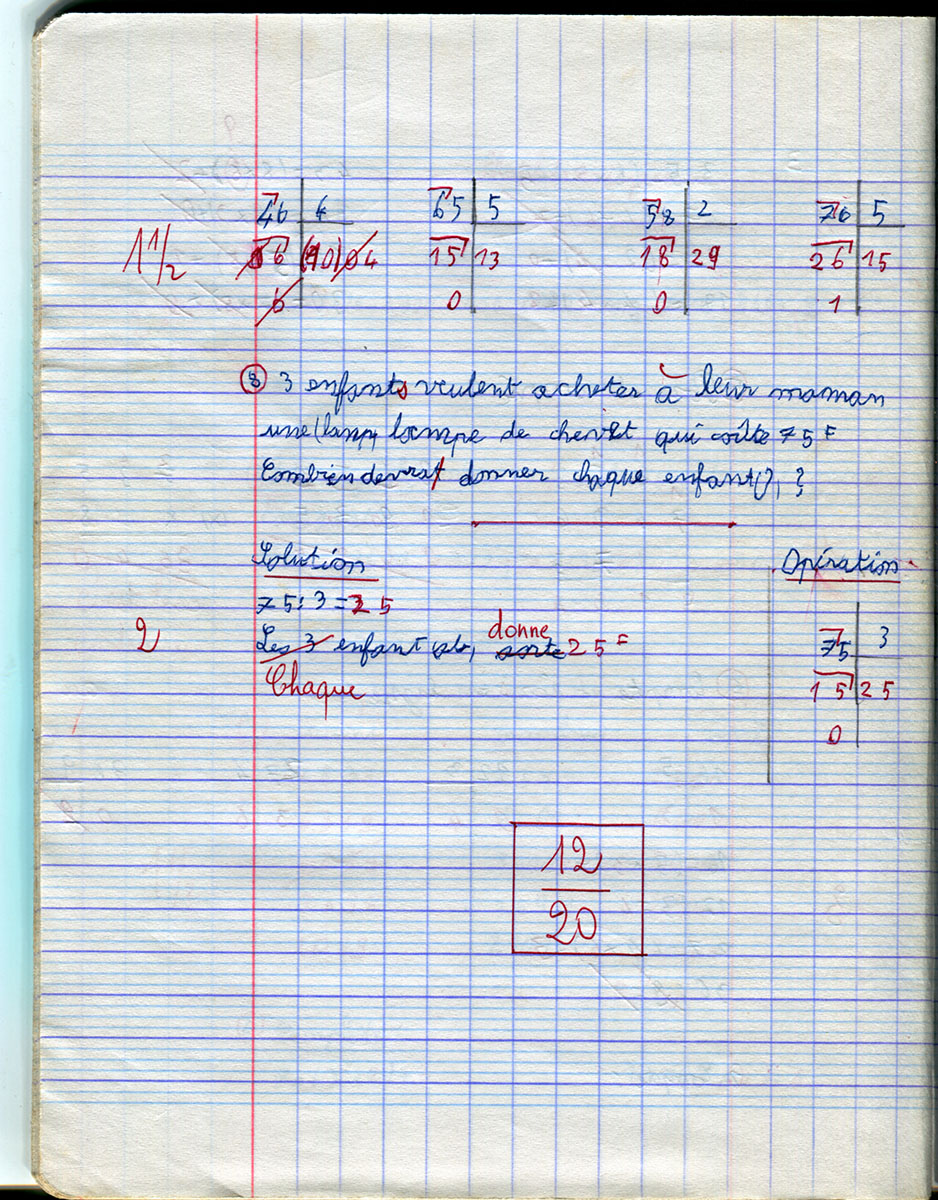 46 4 65 5 58 2 76 5
1 1/2 06 (10) 04 15 13 18 29 26 15
6 0 0 1
8 3 enfants veulent acheter à leur maman
une (lamp, lampe de chevet qui coûte 75 F
Combien devrat donner chaque enfant(), ?
Solution Opération
75 : 3 = 25
75 3
donne
2 Les 3 enfant 25 F
Chaque 15 25
0
12
20